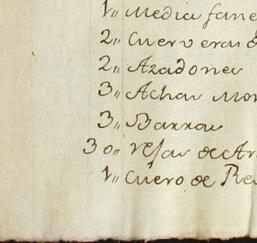 1,, Media fane
2,, Cueros eras d
2,, Azadones
3,, Achas Mon
3,, Barras
30,, rejas de Ar
1,, Cuero de Res